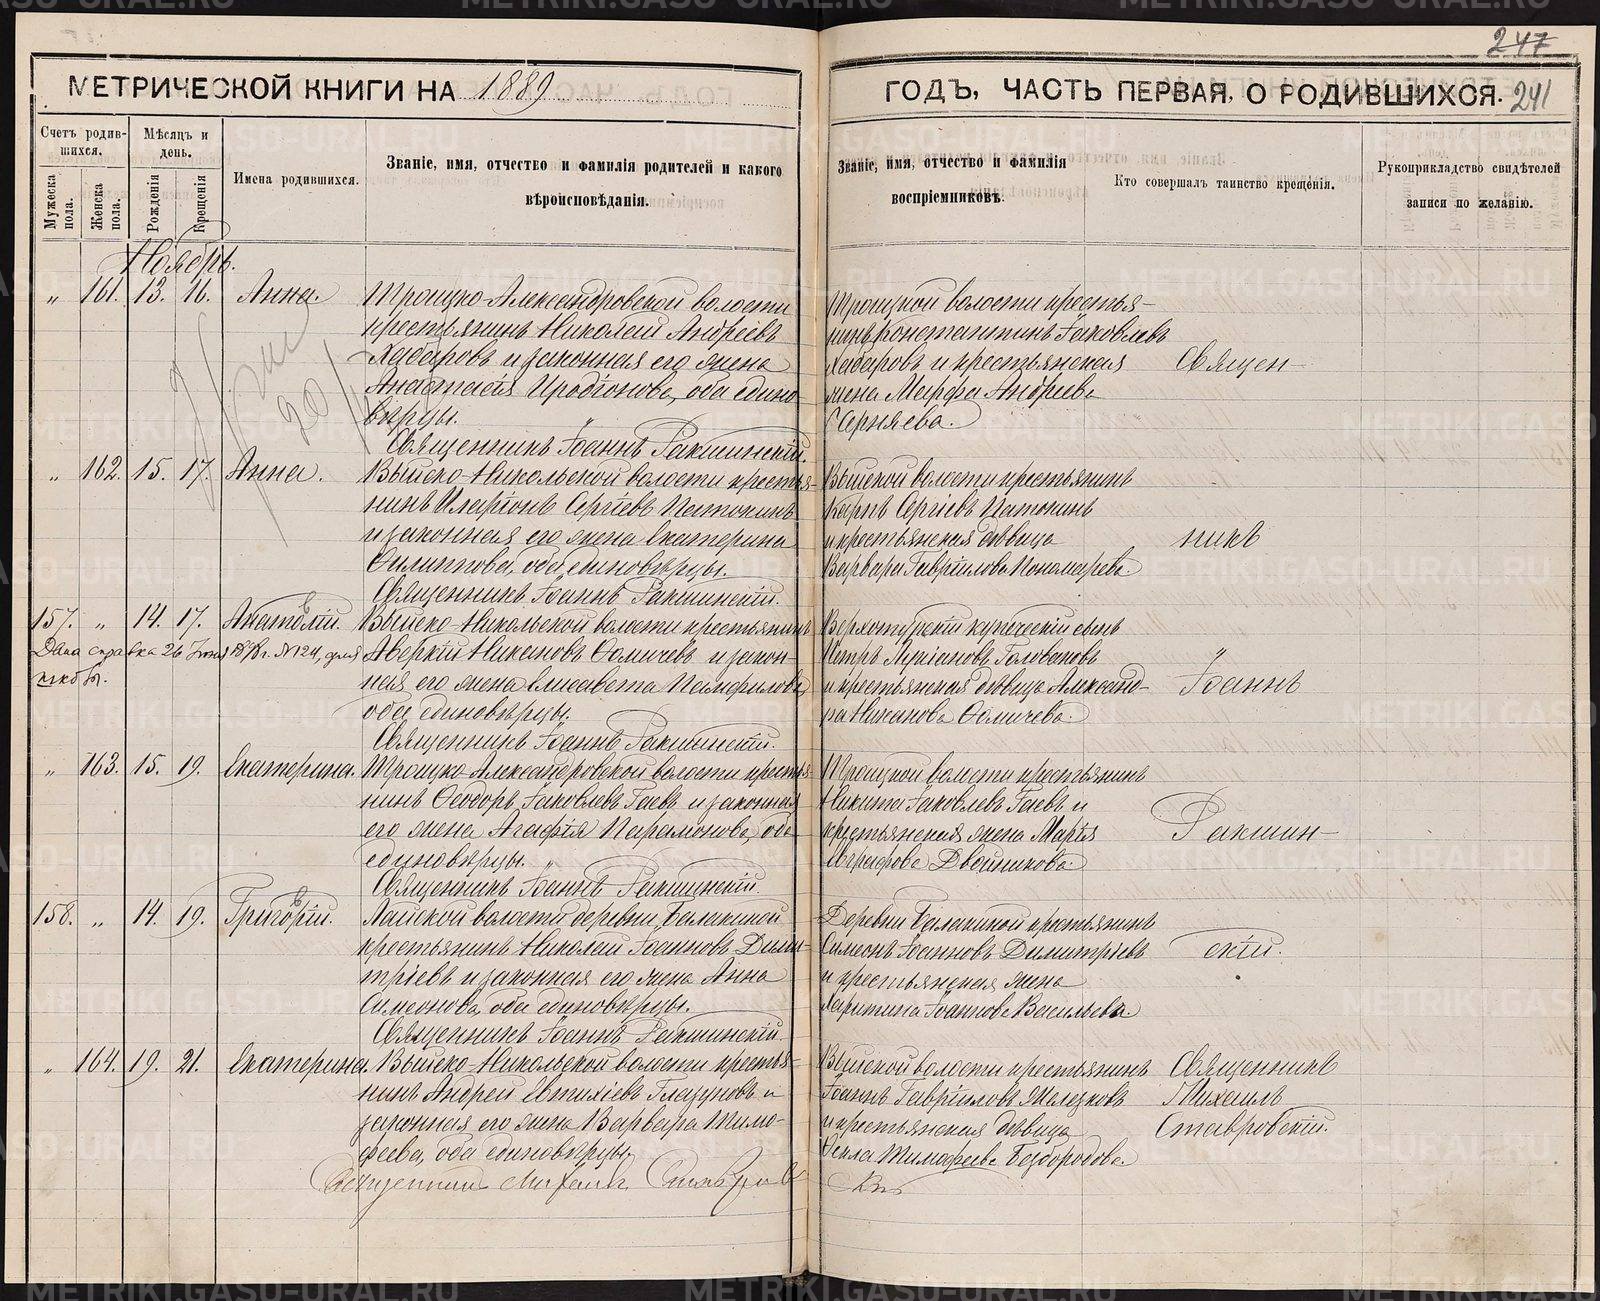 247
МЕТРИЧЕСКОЙ КНИГИ НА 1889
ГОДЪ, ЧАСТЬ ПЕРВАЯ, О РОДИВШИХСЯ. 241
Счетъ родив-
шихся.
Мужеска пола.
Женска пола.
Мѣсяцъ и
день.
Рожденія
Крещенія
Имена родившихся.
Званіе, имя, отчество и фамилія родителей и какого
вѣроисповѣданія.
Званіе, имя, отчество и фамилія
воспріемниковъ.
Кто совершалъ таинство крещенія.
Рукоприкладство свидѣтелей
записи по желанію.
Ноябрь.
„ 161. 13. 16. Анна.
Троицко-Александровской волости
крестьянинъ Николай Андреевъ
Хабаровъ и законная его жена
Анастасія Иродіонова, оба едино-
вѣрцы.
Священникъ Іоаннъ Ракшинскій.
Троицкой волости крестья-
нинъ Константинъ Іаковлевъ
Хабаровъ и крестьянская
жена Марфа Андреева
Священ-
„ 162. 15. 17. Анна.
Выйско-Никольской волости крестья-
нинъ Иларіонъ Сергіевъ Патокинъ
и законная его жена Екатерина
Филиппова, оба единовѣрцы.
Священникъ Іоаннъ Ракшинскій.
Выйской волости крестьянинъ
Карпъ Сергіевъ Патокинъ
и крестьянская дѣвица
Варвара Гавріилова Пономарева.
никъ
157. „ 14. 17. Анатолій.
Дана справка 26 Іюня
Выйско-Никольской волости крестьянинъ
Аверкій Никановъ Фомичевъ и закон-
ная его жена Елисавета Памфилова,
оба единовѣрцы.
Священникъ Іоаннъ Ракшинскій.
Верхотурскій купеческій сынъ
Петръ Лукіановъ Головановъ
и крестьянская дѣвица Александ-
ра Никанова Фомичева.
Іоаннъ
„ 163. 15. 19. Екатерина.
Троицко-Александровской волости крестья-
нинъ Ѳеодоръ Іаковлевъ Гаевъ и законная
его жена Агафія Парамонова, оба
единовѣрцы.
Священникъ Іоаннъ Ракшинскій.
Троицкой волости крестьянинъ
Никита Іаковлевъ Гаевъ и
крестьянская жена Марія
Евграфова Двойникова.
Ракшин-
158. „ 14. 19. Григорій.
Лайской волости деревни Балакиной
крестьянинъ Николай Іоанновъ Дими-
тріевъ и законная его жена Анна
Симеонова, оба единовѣрцы.
Священникъ Іоаннъ Ракшинскій
Деревни Балакиной крестьянинъ
Симеонъ Іоанновъ Димитріевъ
и крестьянская жена
Харитина Іоаннова Васильева.
скій.
„ 164. 19. 21. Екатерина.
Выйско-Никольской волости крестья-
нинъ Андрей Евтихіевъ Глазуновъ и
законная его жена Варвара Тимо-
феева, оба единовѣрцы.
Священникъ Михаилъ Ставровскій
Выйской волости крестьянинъ
Іоаннъ Гавріиловъ Железковъ
и крестьянская дѣвица
Ѳекла Тимофеева Безбородова.
Священникъ
Михаилъ
Ставровскій.
METRIKI.GASO-URAL.RU